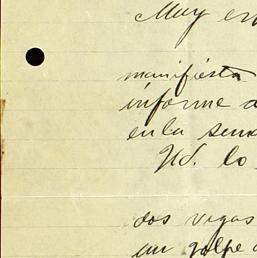 Muy en
manifiesta
informe a
en la sema
Ud. lo
dos vigas
un golpe